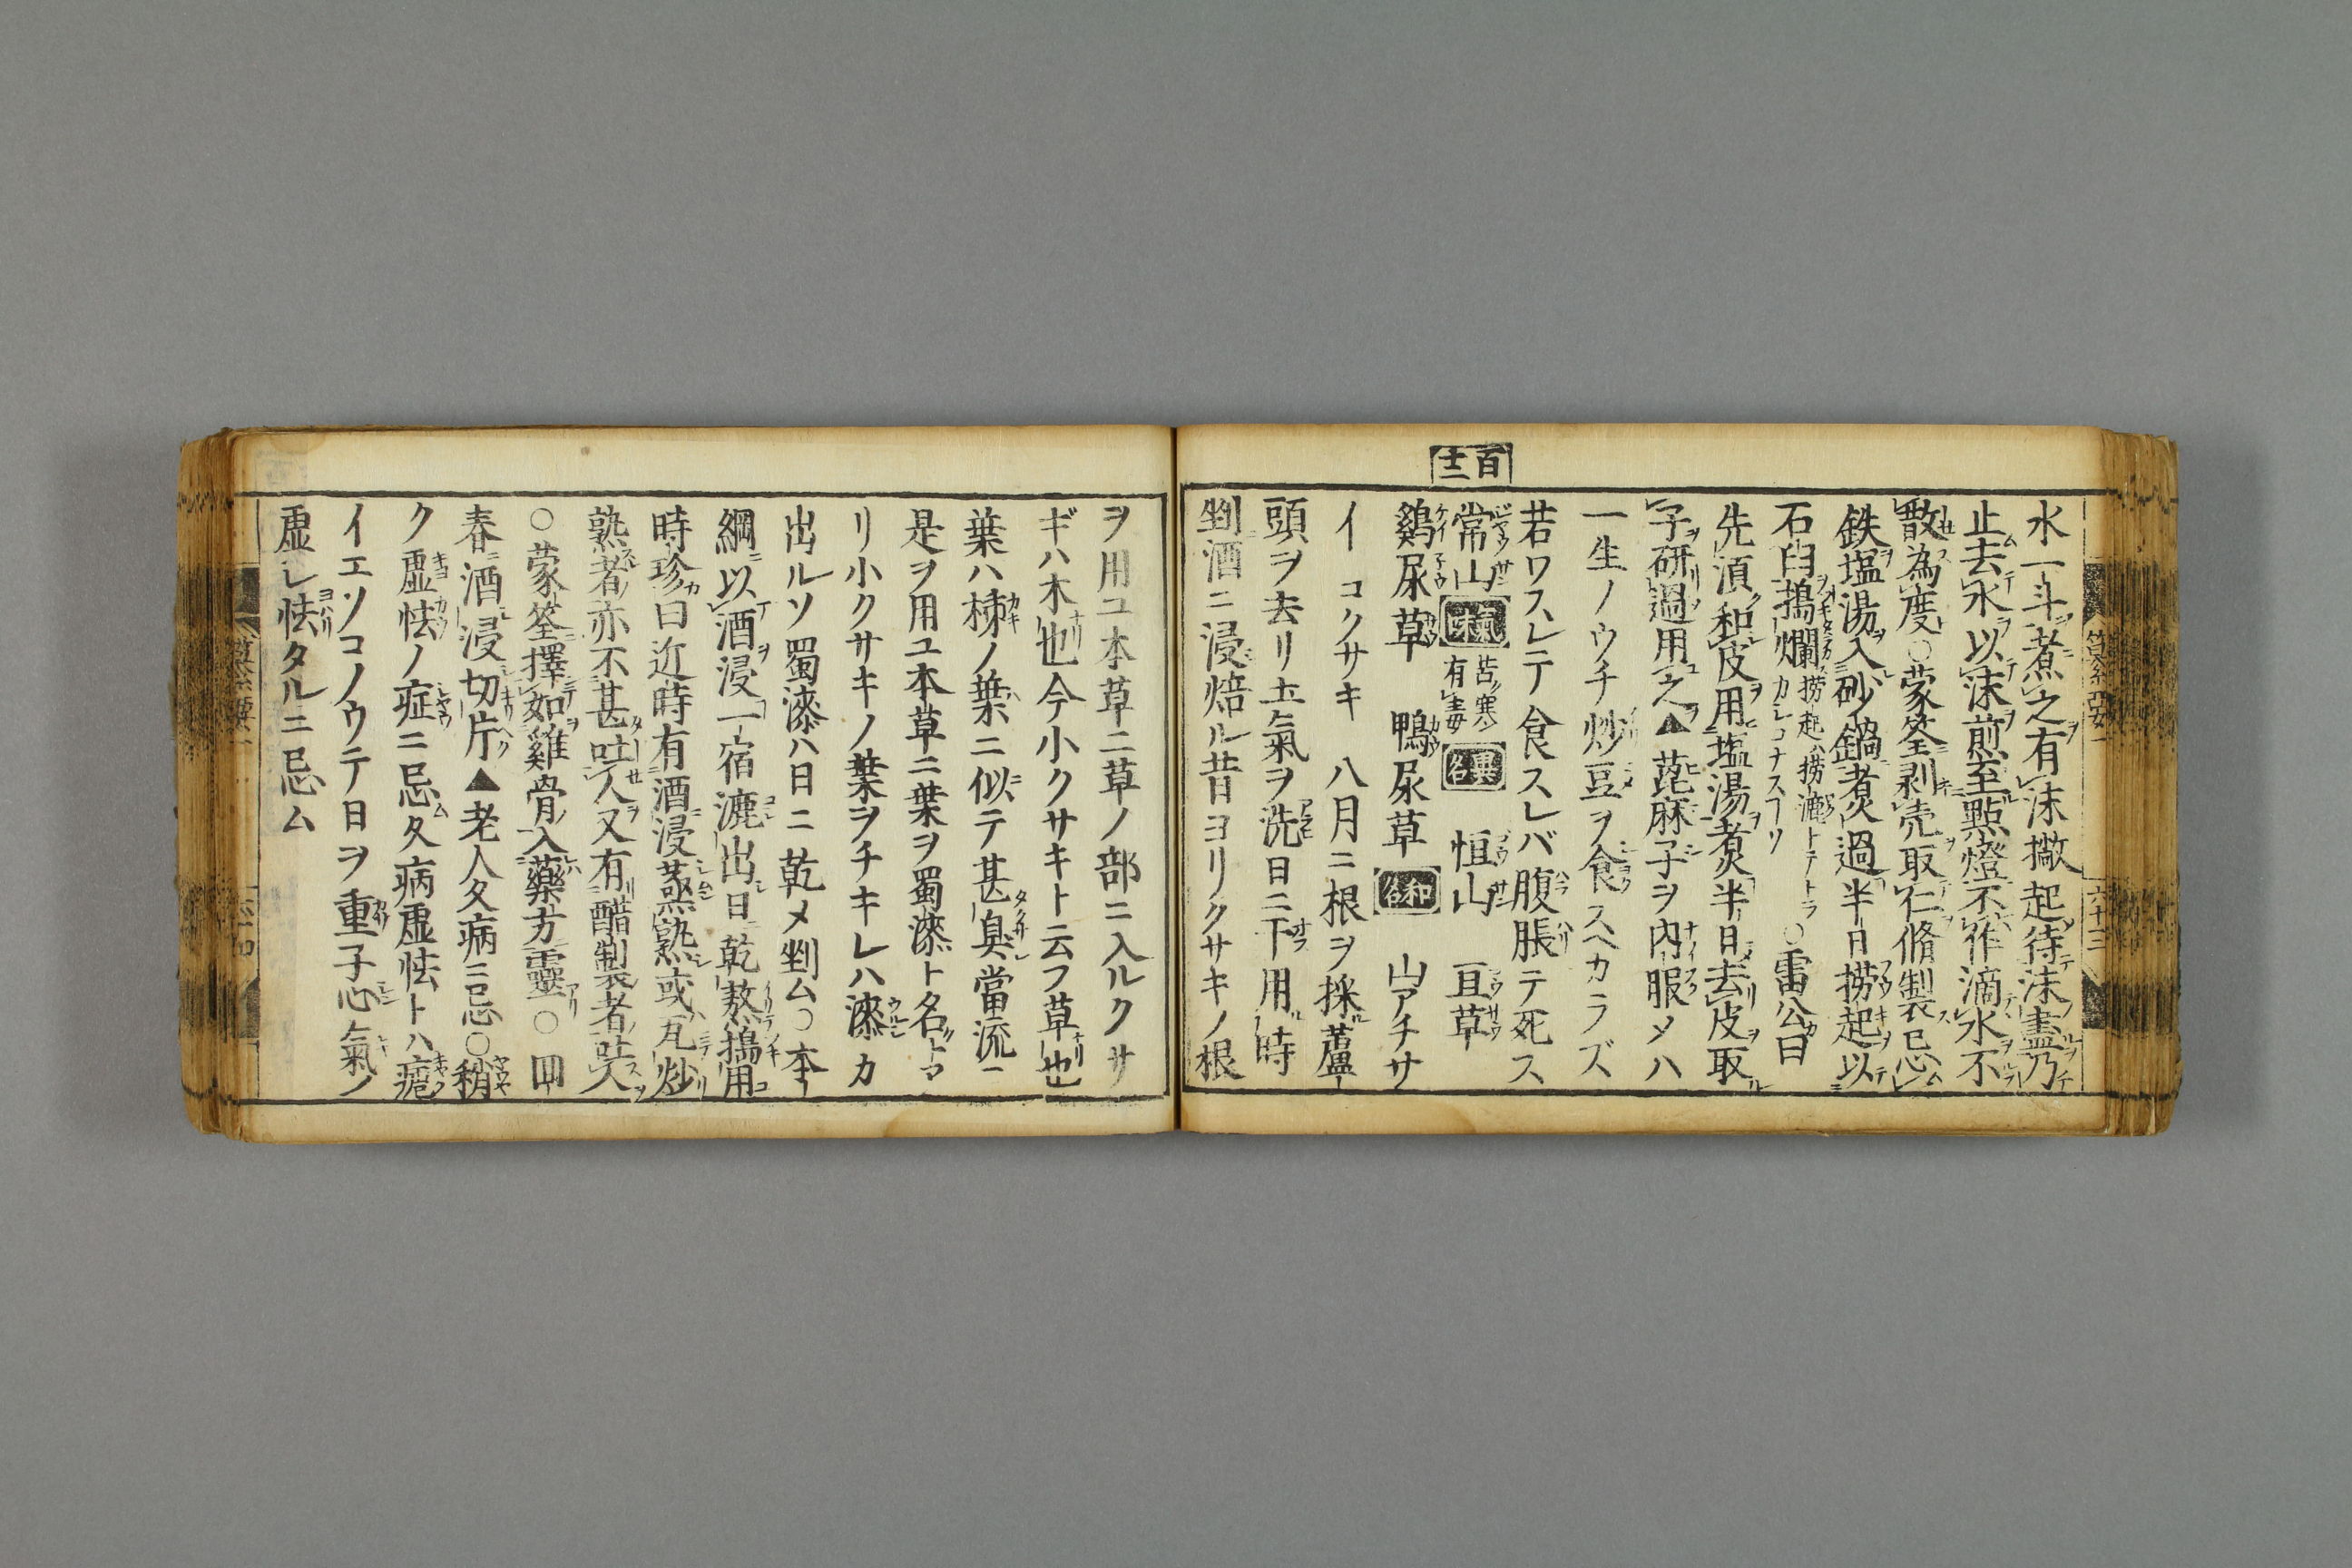 百十二
水一斗煮之有沫撇起待沫盡乃
止去水以沫煎至點燈不作滴水不
散為度○蒙筌剥壳取仁脩製忌
鉄塩湯入砂鍋煮過半日撈起以
石臼搗爛撈起ハ撈漉トテトラカシコナスフリ○雷公曰
先湏和皮用塩湯煮半日去皮取
子研過用之▲蓖麻子ヲ内服メハ
一生ノウチ炒豆ヲ食スヘカラズ
若ワスレテ食スレバ腹脹テ死ス
常山 氣味 苦寒有毒 異名 恒山 互草
鷄尿草 鴨尿草 和名 山アチサ
イ コクサキ 八月ニ根ヲ採蘆
頭ヲ去リ土氣ヲ洗日ニ干用時
剉酒ニ浸焙ル昔ヨリクサキノ根
ヲ用ユ本草ニ草ノ部ニ入ルクサ
ギハ木也今小クサキト云フ草也
葉ハ柹ノ葉ニ似テ甚臭當流ニ
是ヲ用ユ本草ニ葉ヲ蜀漆ト名
リ小クサキノ葉ヲチキレハ漆カ
出ルソ蜀漆ハ日ニ乾メ剉ム○本
綱以酒浸一宿漉出日乾熬搗用
時珍曰近時有酒浸蒸熟或瓦炒
熟者亦不甚吐人又有醋製者吐人
○蒙筌擇如雞骨入藥方靈○回
春酒浸切片▲老人久病ニ忌○稍
ク虚怯ノ症ニ忌ム久病虚怯トハ瘧
イエソコノウテ日ヲ重子心氣ノ
虚シ怯タルニ忌ム